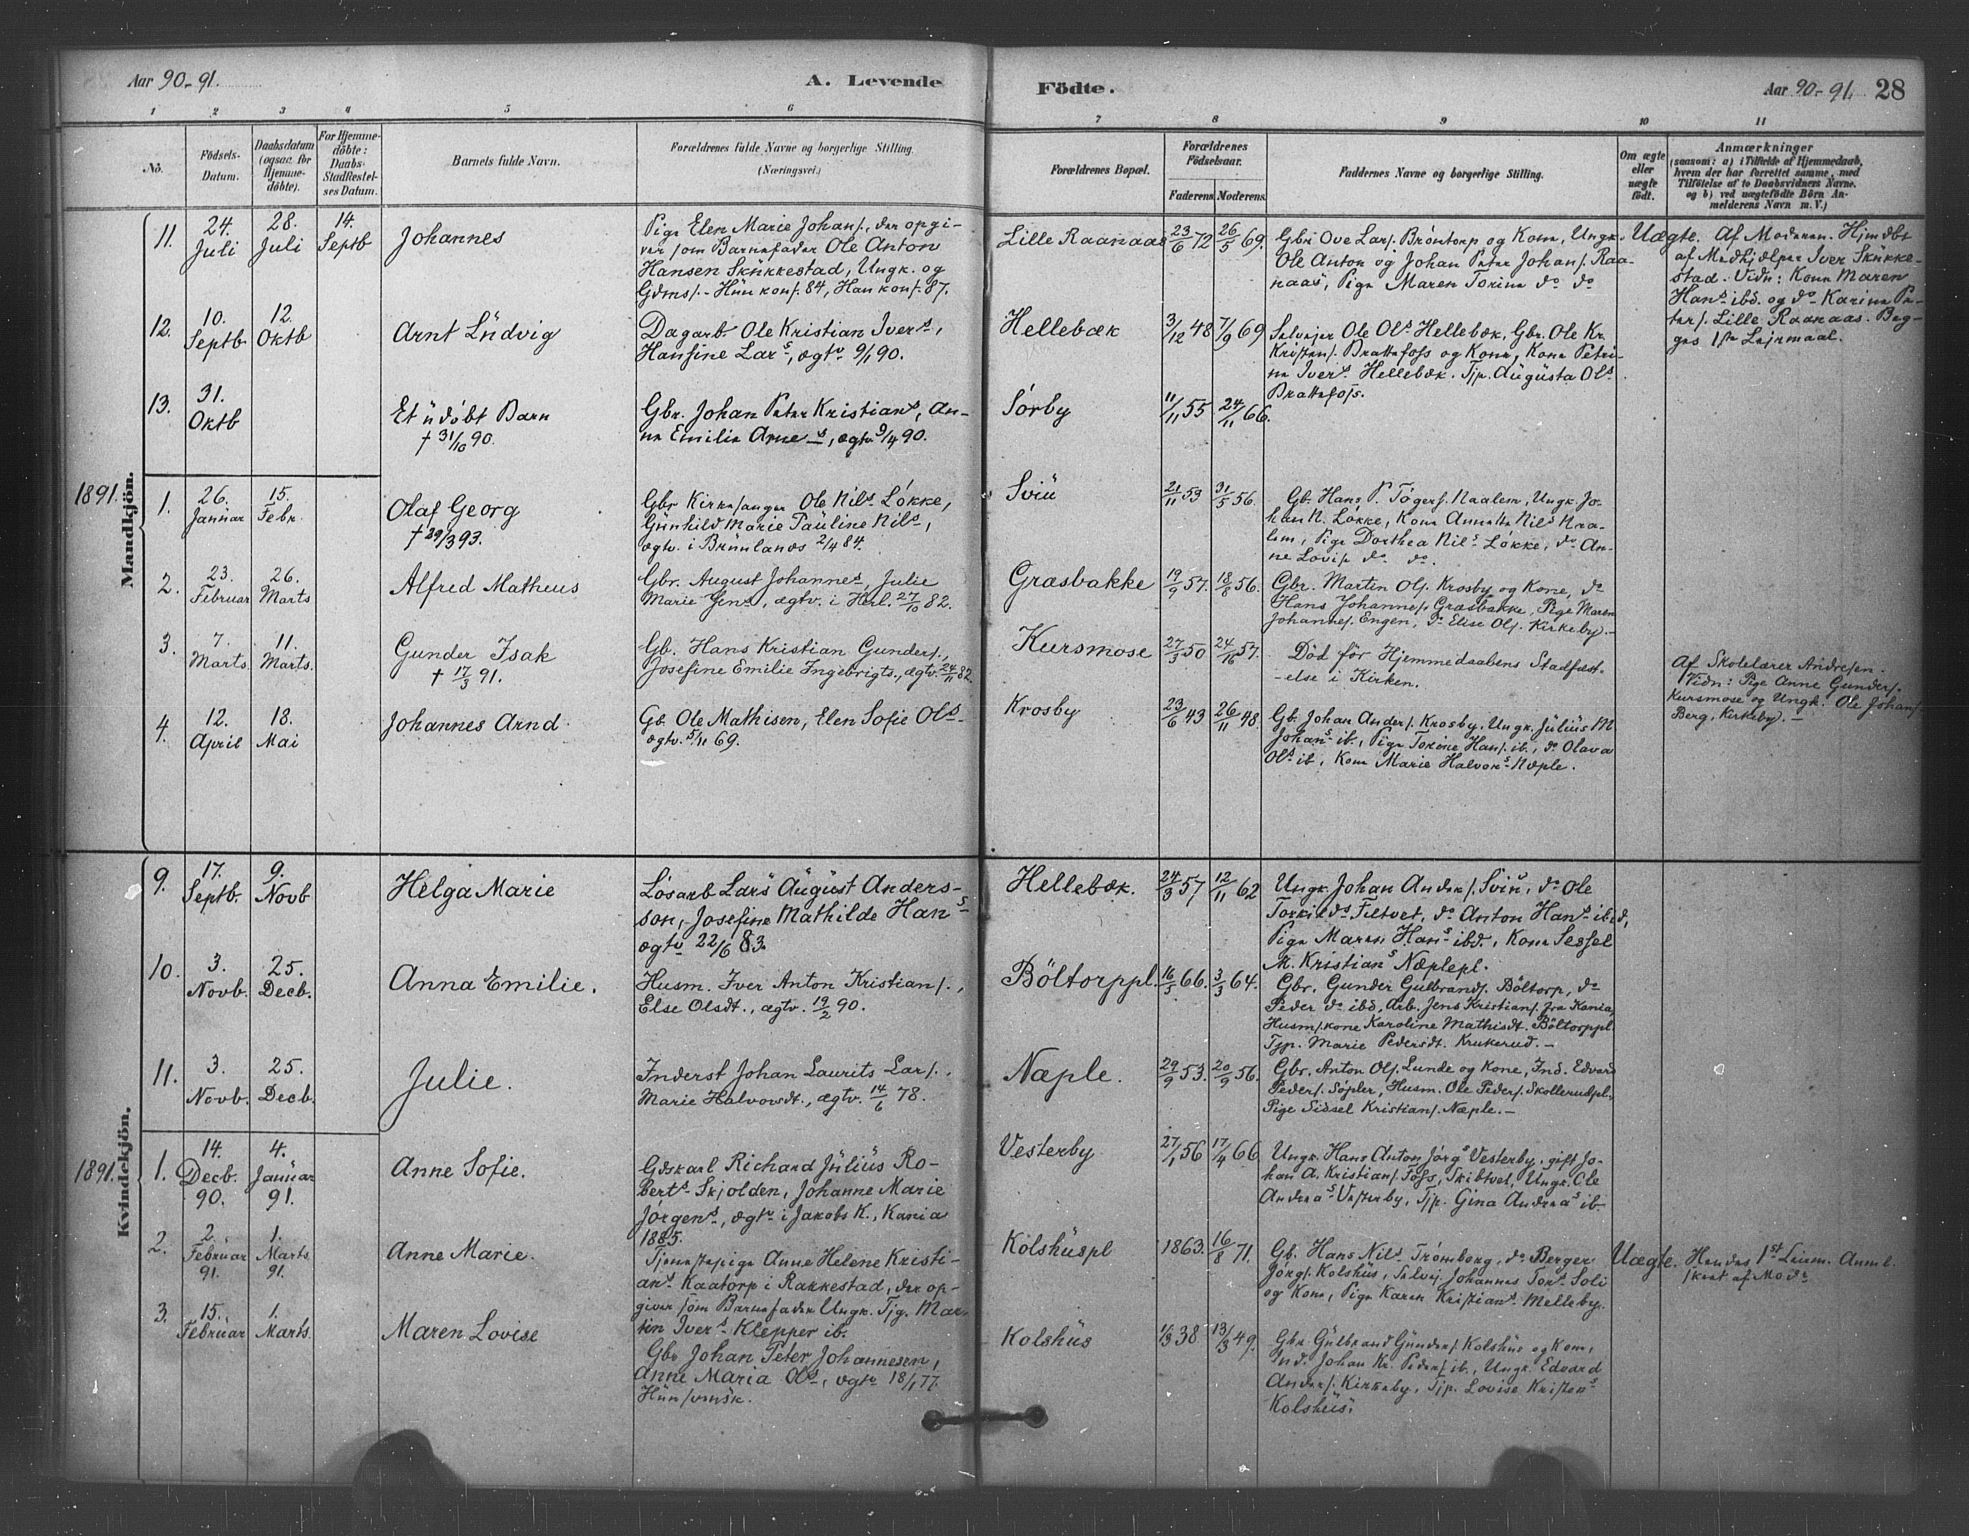 Aar 90-91.
A. Levende
Födte.
Aar 90-91.
28
1 2 3 4 5 6 7 8 9 10 11
No.
Födsels-Datum.
Daabsdatum (ogsaa for Hjemmedöbte).
For Hjemmedöbte: Daabs-Stadfestelses Datum.
Barnets fulde Navn.
Forældrenes fulde Navne og borgerlige Stilling.
(Næringsvei.)
Forældrenes Bopæl.
Forældrenes Födselsaar.
Faderens Moderens
Faddernes Navne og borgerlige Stilling.
Om ægte eller uægte födt.
Anmærkninger
(saasom: a) i Tilfælde af Hjemmedaab, hvem der har forrettet samme, med Tilföielse af to Daabsvidners Navne. og b) ved uægtefödte Börn Anmelderens Navn m. V.)
Mandkjön.
11. 24. Juli 28. Juli 14. Septb Johannes
Pige Elen Marie Johans., der opgi-
ver som Barnefader Ole Anton
Hansen Skükkestad, Ungk. og
Gdms. - Hün konf. 84, Han konf. 87.
Lille Raanaas 23/6 72 26/5 69.
Gbr. Ove Lars. Bröntorp og Kone, Ungk.
Ole Anton og Johan Peter Johans. Raa-
naas, Pige Maren Torine do do
Uægte.
Af Moderen. Hjmdbt
af Medhjelper Iver Skükke-
stad. Vidn: Kone Maren
Hans ibd. og do Karine Pe-
ters. Lille Raanaas. Beg-
ges 1ste Leiermaal.
12. 10. Septb 12. Oktb Arnt Lüdvig
Dagarb. Ole Kristian Ivers.,
Hansine Lars, ægtv. 9/1 90.
Hellebæk 3/12 48 7/9 69
Selvejer Ole Ols Hellebæk, Gbr. Ole Kr.
Kristens. Brattefoss og Kone, Kone Petri-
ne Ivers. Hellebæk. Tjp. Augusta Ols
Brattefoss.
13. 31. Oktb Et üdöbt Barn
† 31/10 90.
Gbr. Johan Peter Kristians, An-
na Emilie Arnes, ægtv. 9/4 90.
Sörby 11/11 55 24/11 66.
1891.
1. 26. Januar 15. Febr. Olaf Georg
† 29/3 93.
Gbr Kirkesanger Ole Nils Lökke,
Günhild Marie Pauline Nils,
ægtv. i Brünlanæs 2/4 84.
Sviü 21/11 59 31/5 56.
Gb. Hans P. Tögers. Naalem, Ungk. Jo-
han N. Lökke, Kone Annette Nils Naa-
lem, Pige Dorthea Nils Lökke, do An-
ne Lovise do do.
2. 23. Februar 26. Marts Alfred Matheus
Gbr. August Johannes, Julie
Marie Jens, ægtv. i Herl. 27/10 82.
Græsbakke 19/9 57. 18/8 56.
Gbr. Martin Ols. Krosby og Kone, do
Hans Johannes. Græsbakke, Pige Maren
Johannes. Engen, do Elise Ols. Kirkeby.-
3. 7. Marts. 11. Marts. Gunder Isak
† 17/3 91.
Gb. Hans Kristian Gunders.,
Josefine Emilie Ingebrigts., ægtv. 24/11 82.
Kursmose 27/3 50 24/10 57.
Död för Hjemmedaabens Stadfæst-
else i Kirken.
Af Skolelærer Andresen.
Vidn: Pige Anne Gunders.
Kursmose og Ungk. Ole Johans.
Berg, Kirkeby.-
4. 12. April 18. Mai Johannes Arnd.
Gb. Ole Mathisen, Elen Sofie Ols
ægtv. 5/11 69.
Krosby 23/6 43 26/11 48.
Gb. Johan Anders. Krosby, Ungk. Julius M
Johans ib., Pige Torine Hans. ib., do Olava
Ols ib., Kone Marie Halvors Næple.
Kvindekjön.
9. 17. Septb. 9. Novb Helga Marie
Lösarb Lars August Anders-
son, Josefine Mathilde Hans
ægtv 22/6 83.
Hellebæk. 24/3 57 12/11 62
Ungk. Johan Anders. Sviü, do Ole
Torkilds Filtvet, do Anton Hans ibid,
Pige Maren Hans ibd., Kone Sessel
M. Kristians Næplepl.
10. 3. Novb. 25. Decb. Anna Emilie.
Husm. Iver Anton Kristians.,
Else Olsdt., ægtv. 19/2 90.
Böltorppl. 16/5 66. 3/3 64.
Gbr. Gunder Gulbrands. Böltorp, do
Peder do ibd, Arb. Jens Kristians. fra Kania,
Husms.kone Karoline Mathisdt. Böltorppl.
Tjp. Marie Pedersdt. Krukerud.-
11. 3. Novb. 25. Decb. Julie.
Inderst Johan Laurits Lars.,
Marie Halvorsdt., ægtv. 14/6 78.
Næple. 29/9 53. 20/9 56.
Gbr. Anton Ols. Lunde og Kone, Ind. Edvard
Peders. Söpler, Husm. Ole Peders. Skollerudpl.,
Pige Sidsel Kristians. Næple.-
1891.
1. 14. Decb. 90. 4. Januar 91. Anne Sofie.
Gdskarl Richard Julius Ro-
berts Skjolden, Johanne Marie
Jörgens, ægtv i Jakobs K., Kania
1885.
Vesterby 27/1 56 17/4 66
Ungk. Hans Anton Jörgs Vesterby, gift Jo-
han A. Kristians. Foss, Skibtvet, Ungk. Ole
Andreas Vesterby, Tjp. Gina Andreas ib.
2. 2. Februar 91. 1. Marts 91. Anne Marie.
Tjenestepige Anne Helene Kristi-
ans. Kaatorp i Rakkestad, der op-
giver som Barnefader Ungk. Tjg. Mar-
tin Ivers. Klepper ib.
Kolshüspl 1863. 16/8 71.
Gb. Hans Nils. Trömborg, do Berger
Jörgs. Kolshüs, Selvej. Johannes Tors. Soli
og Kone, Pige Karen Kristians. Melleby.
Uægte.
Hendes 1st Leierm. Anmel.
skeet af Mod.
3. 15. Februar 1. Marts. Maren Lovise
Gbr Johan Peter Johannesen,
Anne Maria Ols, ægtv 18/1 77.
Kolshüs 1/3 38 13/3 49.
Gbr. Gulbrand Gunders. Kolshüs og Kone,
Ind. Johan Kr. Peders. ib., Ungk. Edvard
Anders. Kirkeby, Tjp. Lovise Kristens
Kolshüs.